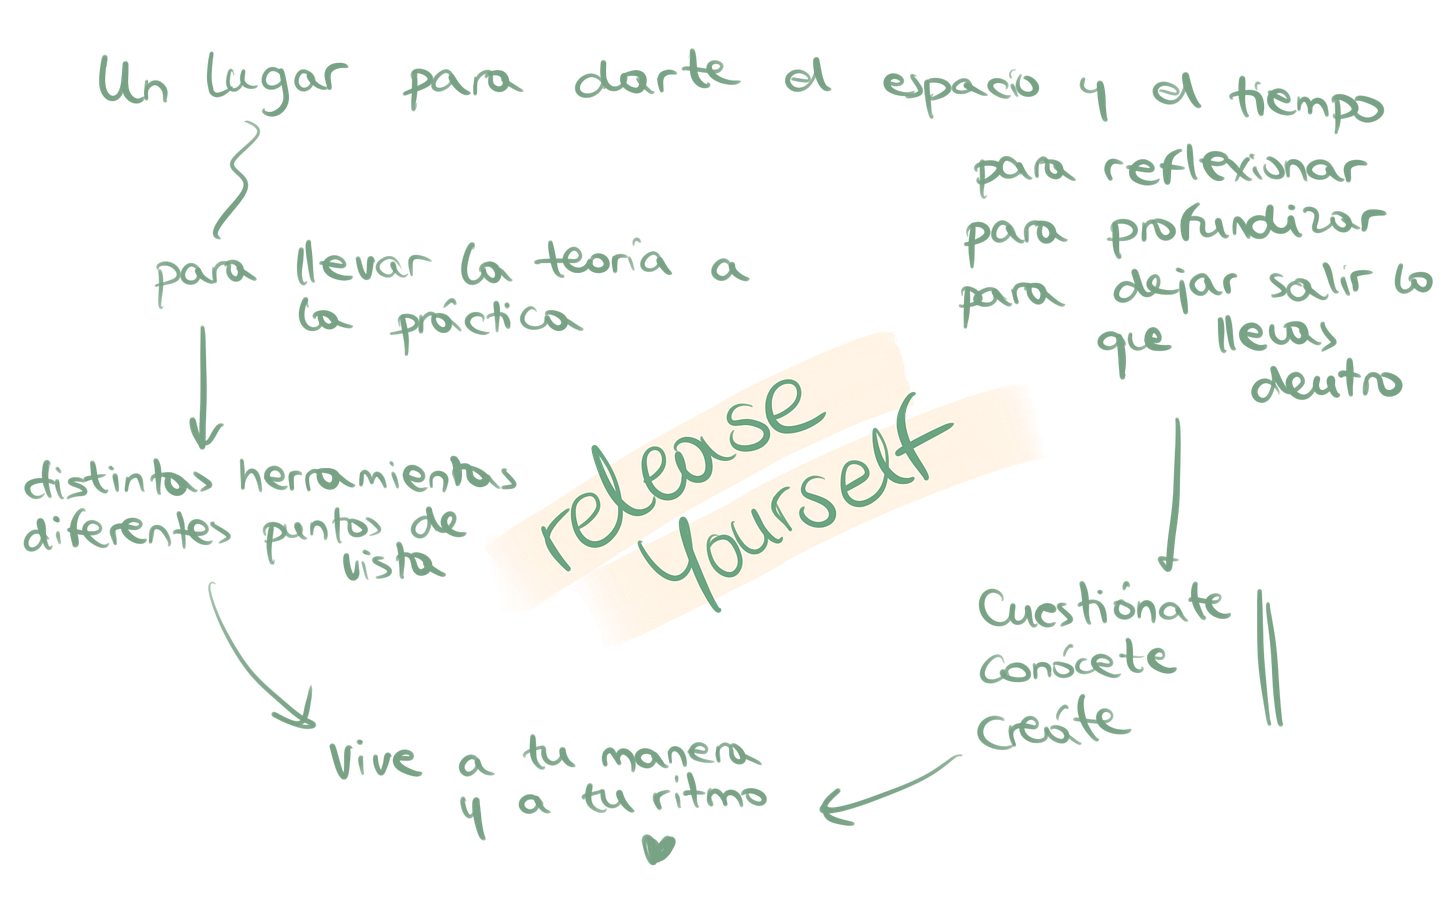 Un lugar para darte el espacio y el tiempo
para reflexionar
para profundizar
para dejar salir lo
que llevas
dentro
para llevar la teoría a
la práctica
distintas herramientas
diferentes puntos de
vista
release
yourself
Cuestiónate
conócete
creáte
vive a tu manera
y a tu ritmo